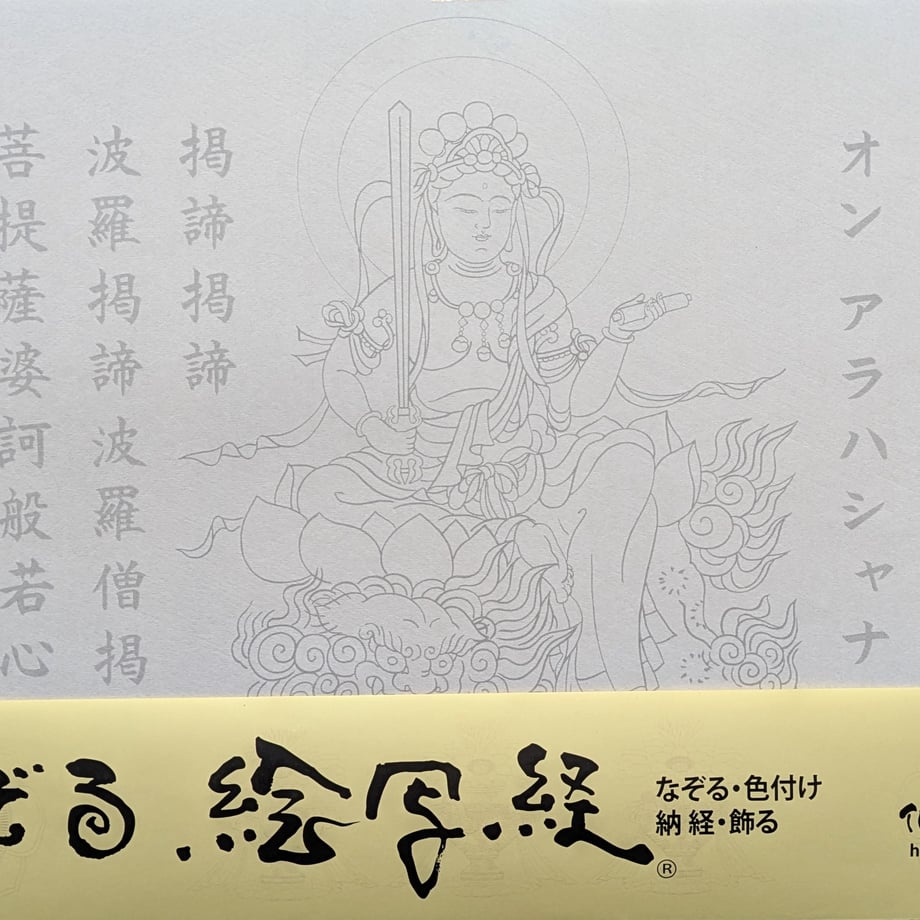 オン アラハシャナ
掲諦掲諦
波羅掲諦波羅僧掲
菩提薩婆訶般若心
ぞる 絵写経®
なぞる・色付け
納経・飾る